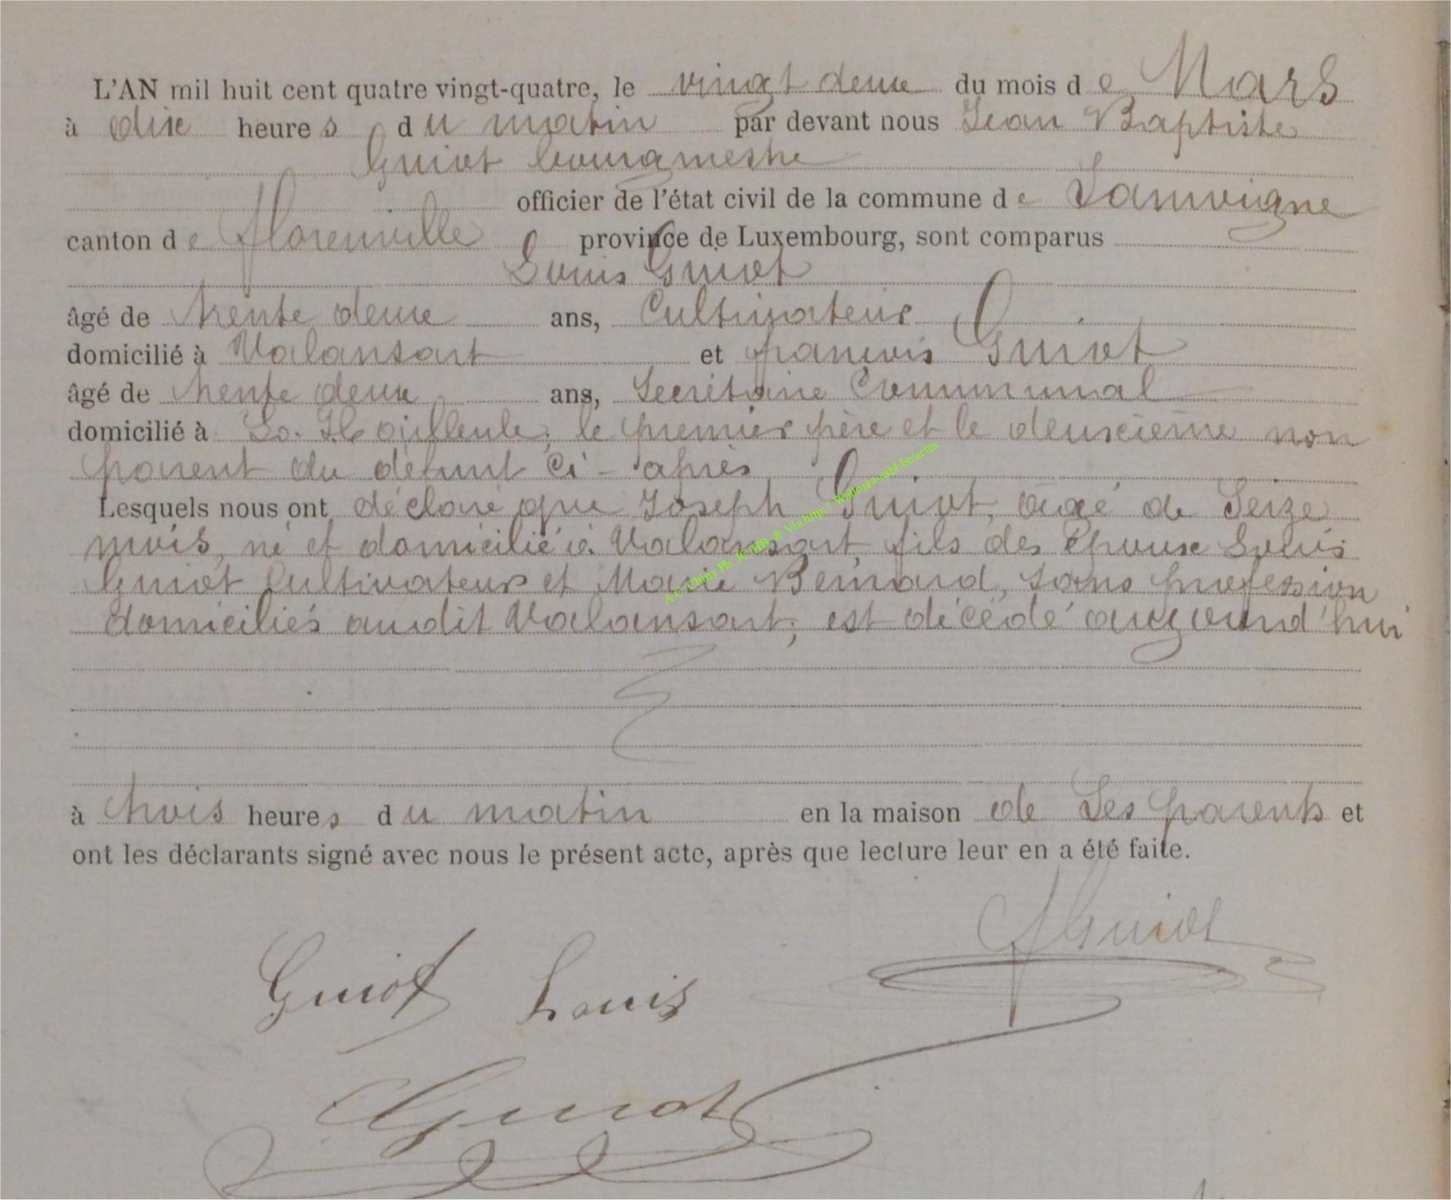 L'AN mil huit cent quatre vingt-quatre, le vingt deux du mois de Mars
à dix heures du matin par devant nous Jean Baptiste
Guiot bourgmestre
officier de l'état civil de la commune de Jamoigne
canton de Florenville province de Luxembourg, sont comparus
Louis Guiot
âgé de trente deux ans, Cultivateur
domicilié à Valansart et françois Guiot
âgé de trente deux ans, Secrétaire Communal
domicilié à La Hailleule, le premier père et le deuxième non
parent du défunt ci-après
Lesquels nous ont déclaré que Joseph Guiot, âgé de Seize
mois, né et domicilié à Valansart, fils des époux Louis
Guiot Cultivateur et Marie Bernard, sans profession
domiciliés audit Valansart, est décédé aujourd'hui
à trois heures du matin en la maison de Ses parents et
ont les déclarants signé avec nous le présent acte, après que lecture leur en a été faite.
Guiot Louis
Guiot
Guiot